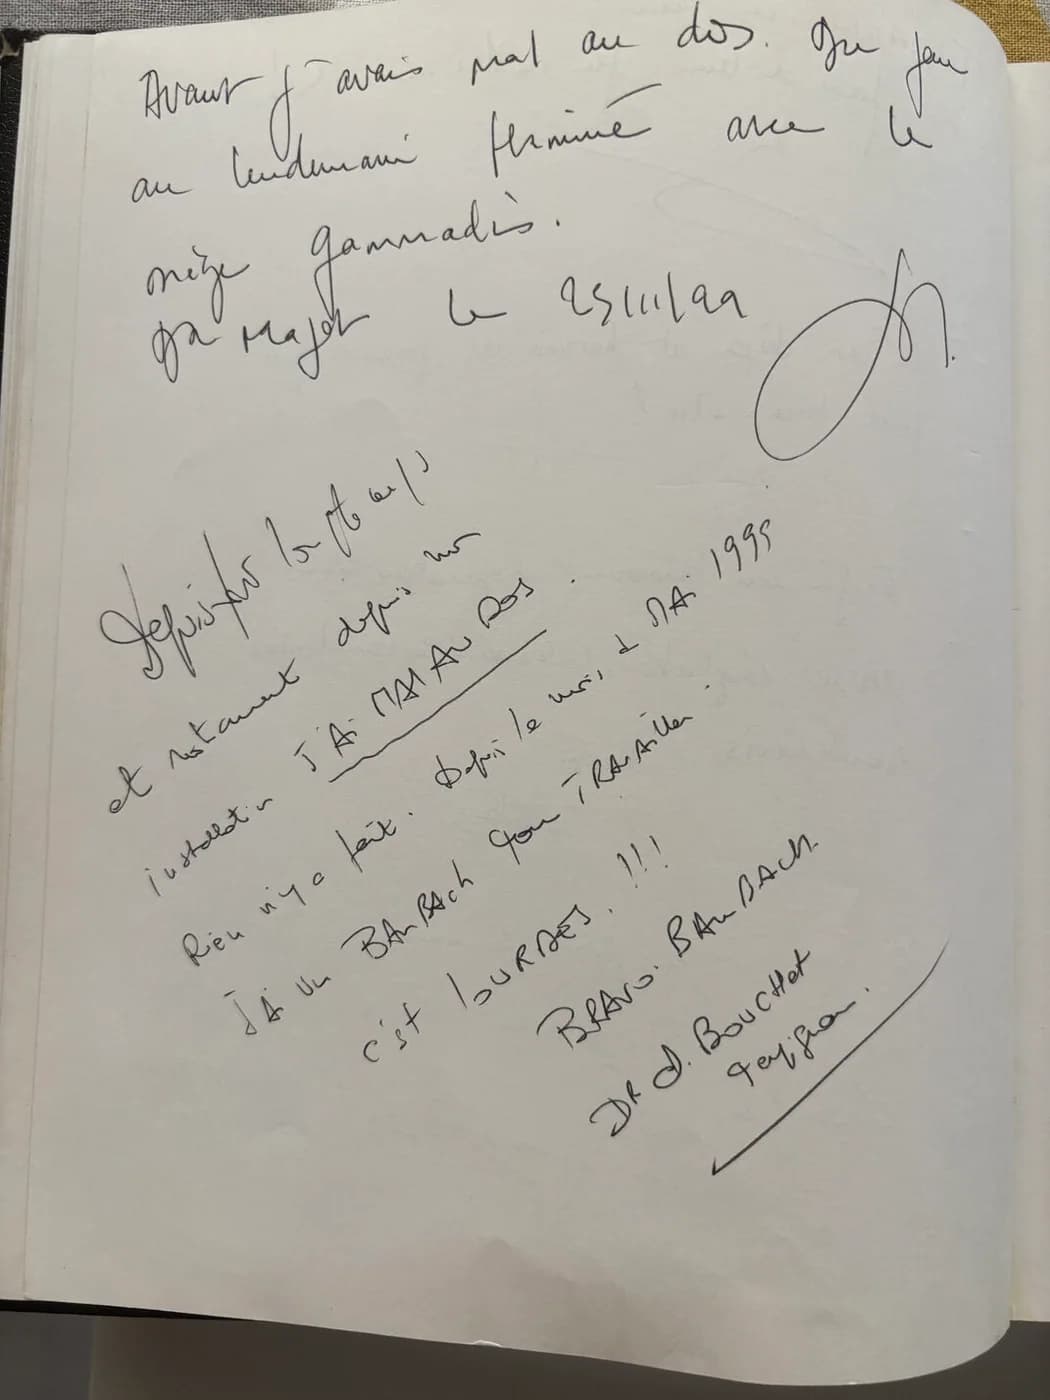 Avant j'avais mal au dos. Du jour
au lendemain terminé avec le
siège gammadis.
Dr Majot le 25/11/99
Depuis longtemps
et notamment depuis mon
installation J'AI MAL AU DOS.
Rien n'y a fait. Depuis le mois de MAI 1999
J'AI UN BAMBACH pour TRAVAILLER.
c'est LOURDES. !!!
BRAVO. BAMBACH.
DR d. BOUCHET
Perpignan.